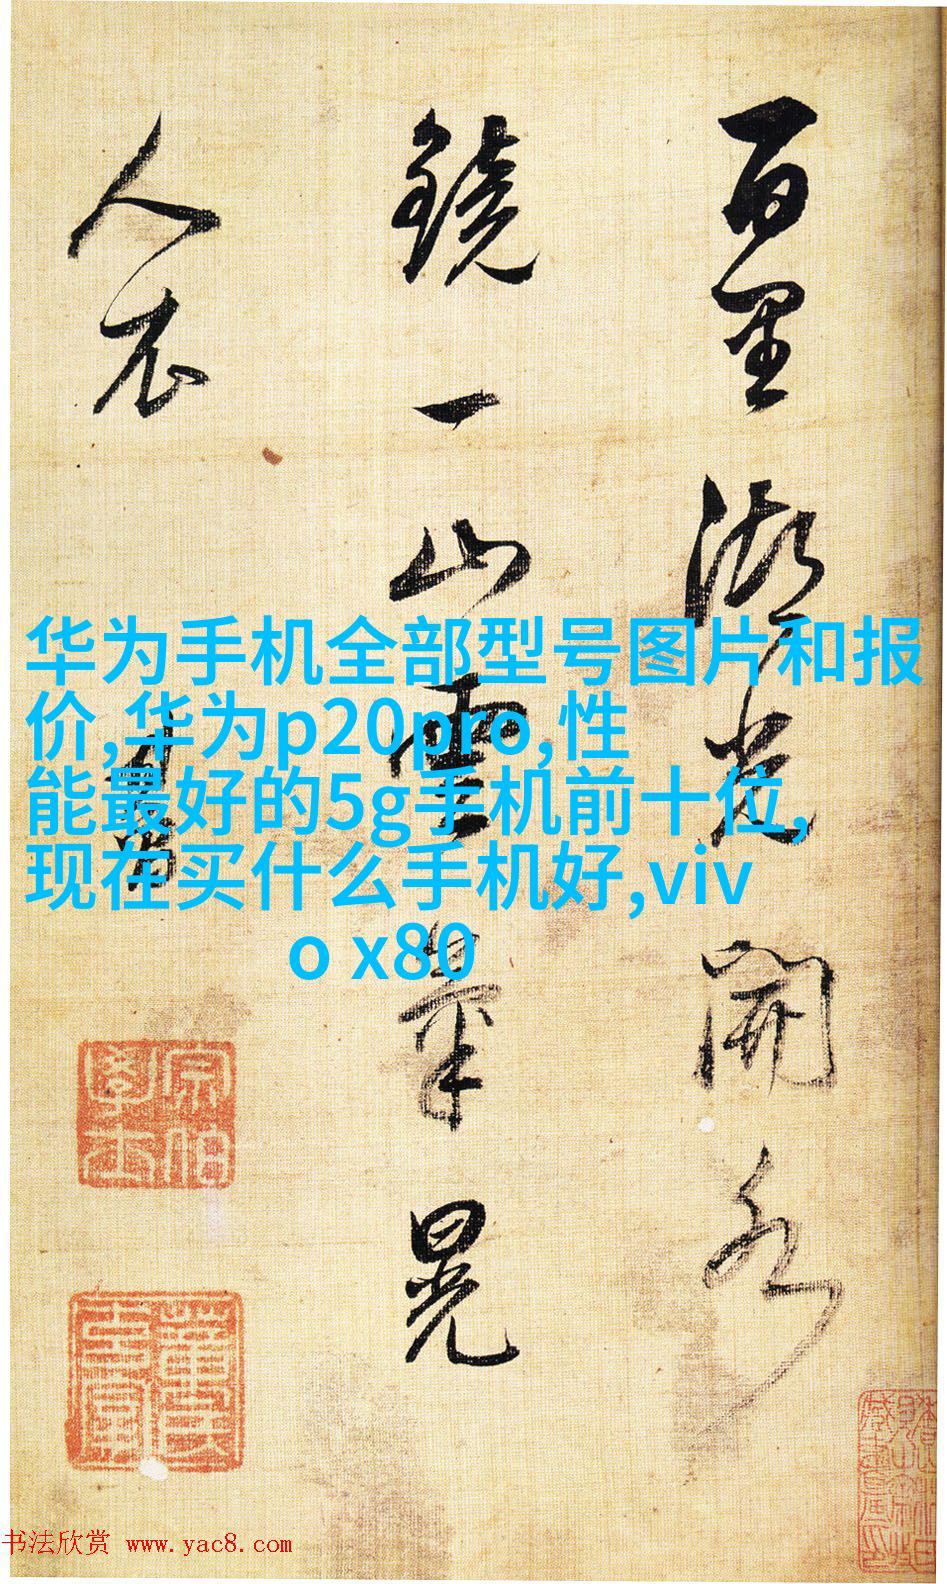 百里湖光開水
鏡一山雲氣晃
人衣
华为手机全部型号图片和报
价,华为p20pro,性
能最好的5g手机前十位,
现在买什么手机好,viv
o x80
宗伯學士
董氏玄宰
书法欣赏 www.yac8.com